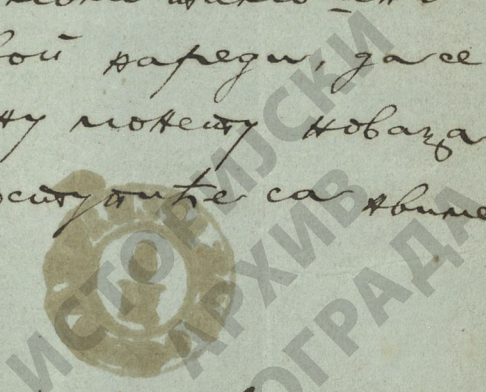 ој нареди, да се
ну монету новаца
оступиће са њиме
ИСТОРИЈСКИ
АРХИВ
БЕОГРАДА